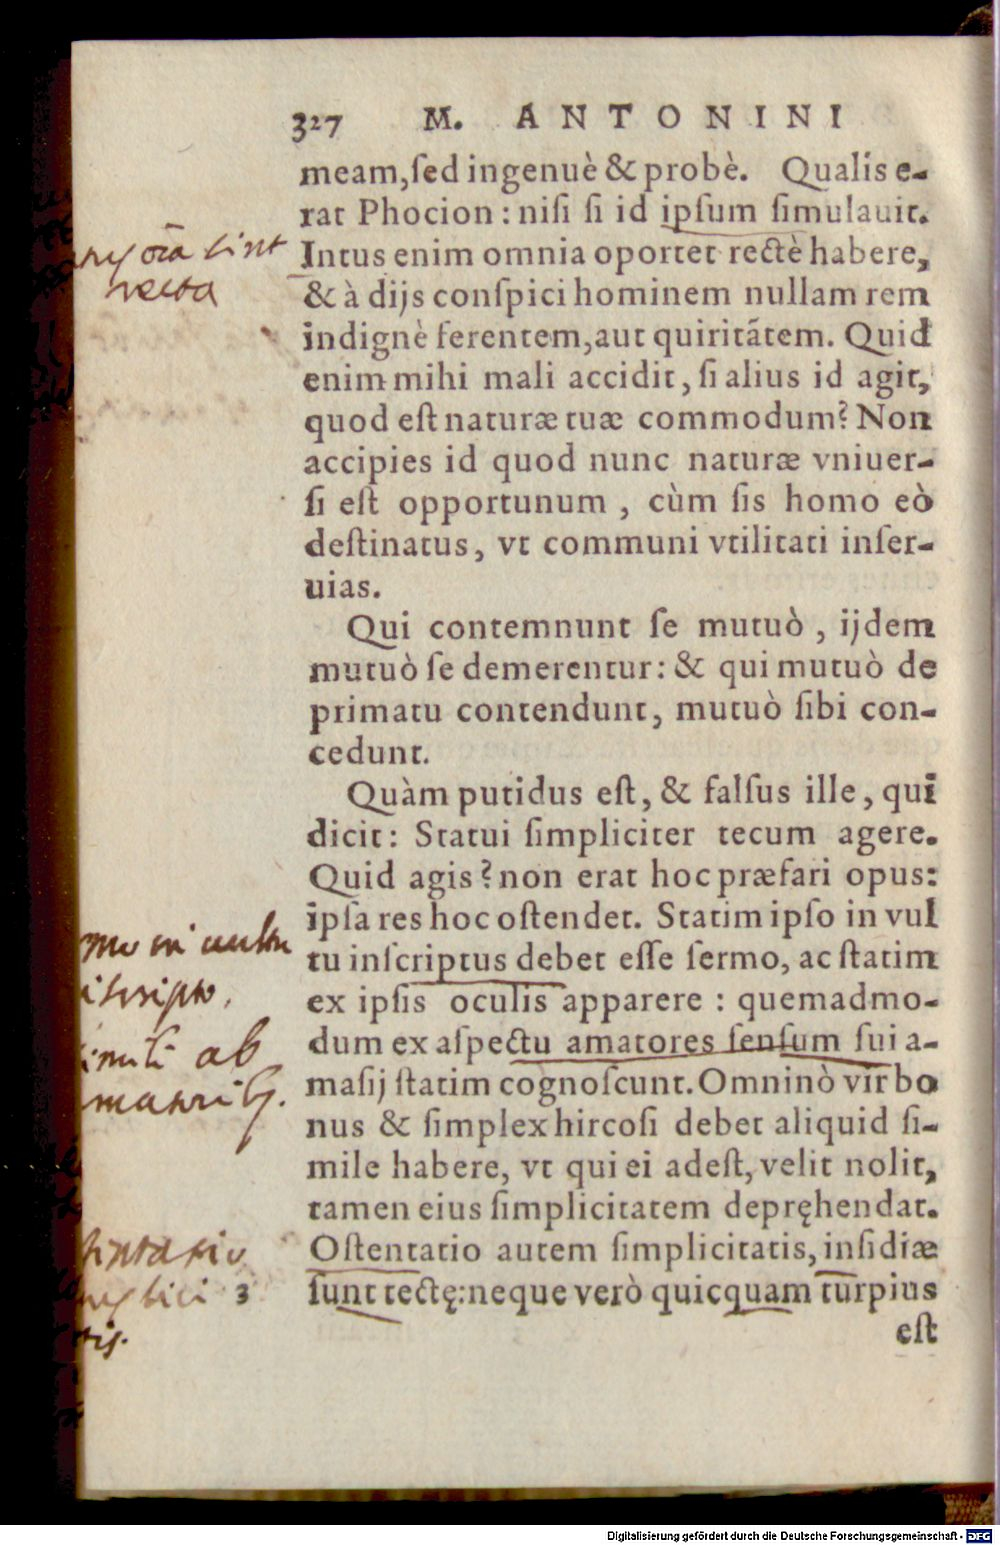 327 M. ANTONINI
meam,ſed ingenuè & probè. Qualis e-
rat Phocion : niſi ſi id ipſum ſimulauit.
Intus enim omnia oportet rectè habere,
& à dijs conſpici hominem nullam rem
indignè ferentem,aut quiritãtem. Quid
enim mihi mali accidit, ſi alius id agit,
quod eſt naturæ tuæ commodum? Non
accipies id quod nunc naturæ vniuer-
ſi eſt opportunum , cùm ſis homo eò
deſtinatus, vt communi vtilitati inſer-
uias.
Qui contemnunt ſe mutuò , ijdem
mutuò ſe demerentur: & qui mutuò de
primatu contendunt, mutuò ſibi con-
cedunt.
Quàm putidus eſt, & falſus ille, qui
dicit: Statui ſimpliciter tecum agere.
Quid agis? non erat hoc præfari opus:
ipſa res hoc oſtendet. Statim ipſo in vul
tu inſcriptus debet eſſe ſermo, ac ſtatim
ex ipſis oculis apparere : quemadmo-
dum ex aſpectu amatores ſenſum ſui a-
maſij ſtatim cognoſcunt. Omninò vir bo
nus & ſimplex hircoſi debet aliquid ſi-
mile habere, vt qui ei adeſt, velit nolit,
tamen eius ſimplicitatem depręhendat.
Oſtentatio autem ſimplicitatis, inſidiæ
ſunt tectę: neque verò quicquam turpius
eſt
oĩa sint
recta
in uultu
ab
Digitalisierung gefördert durch die Deutsche Forschungsgemeinschaft - DFG